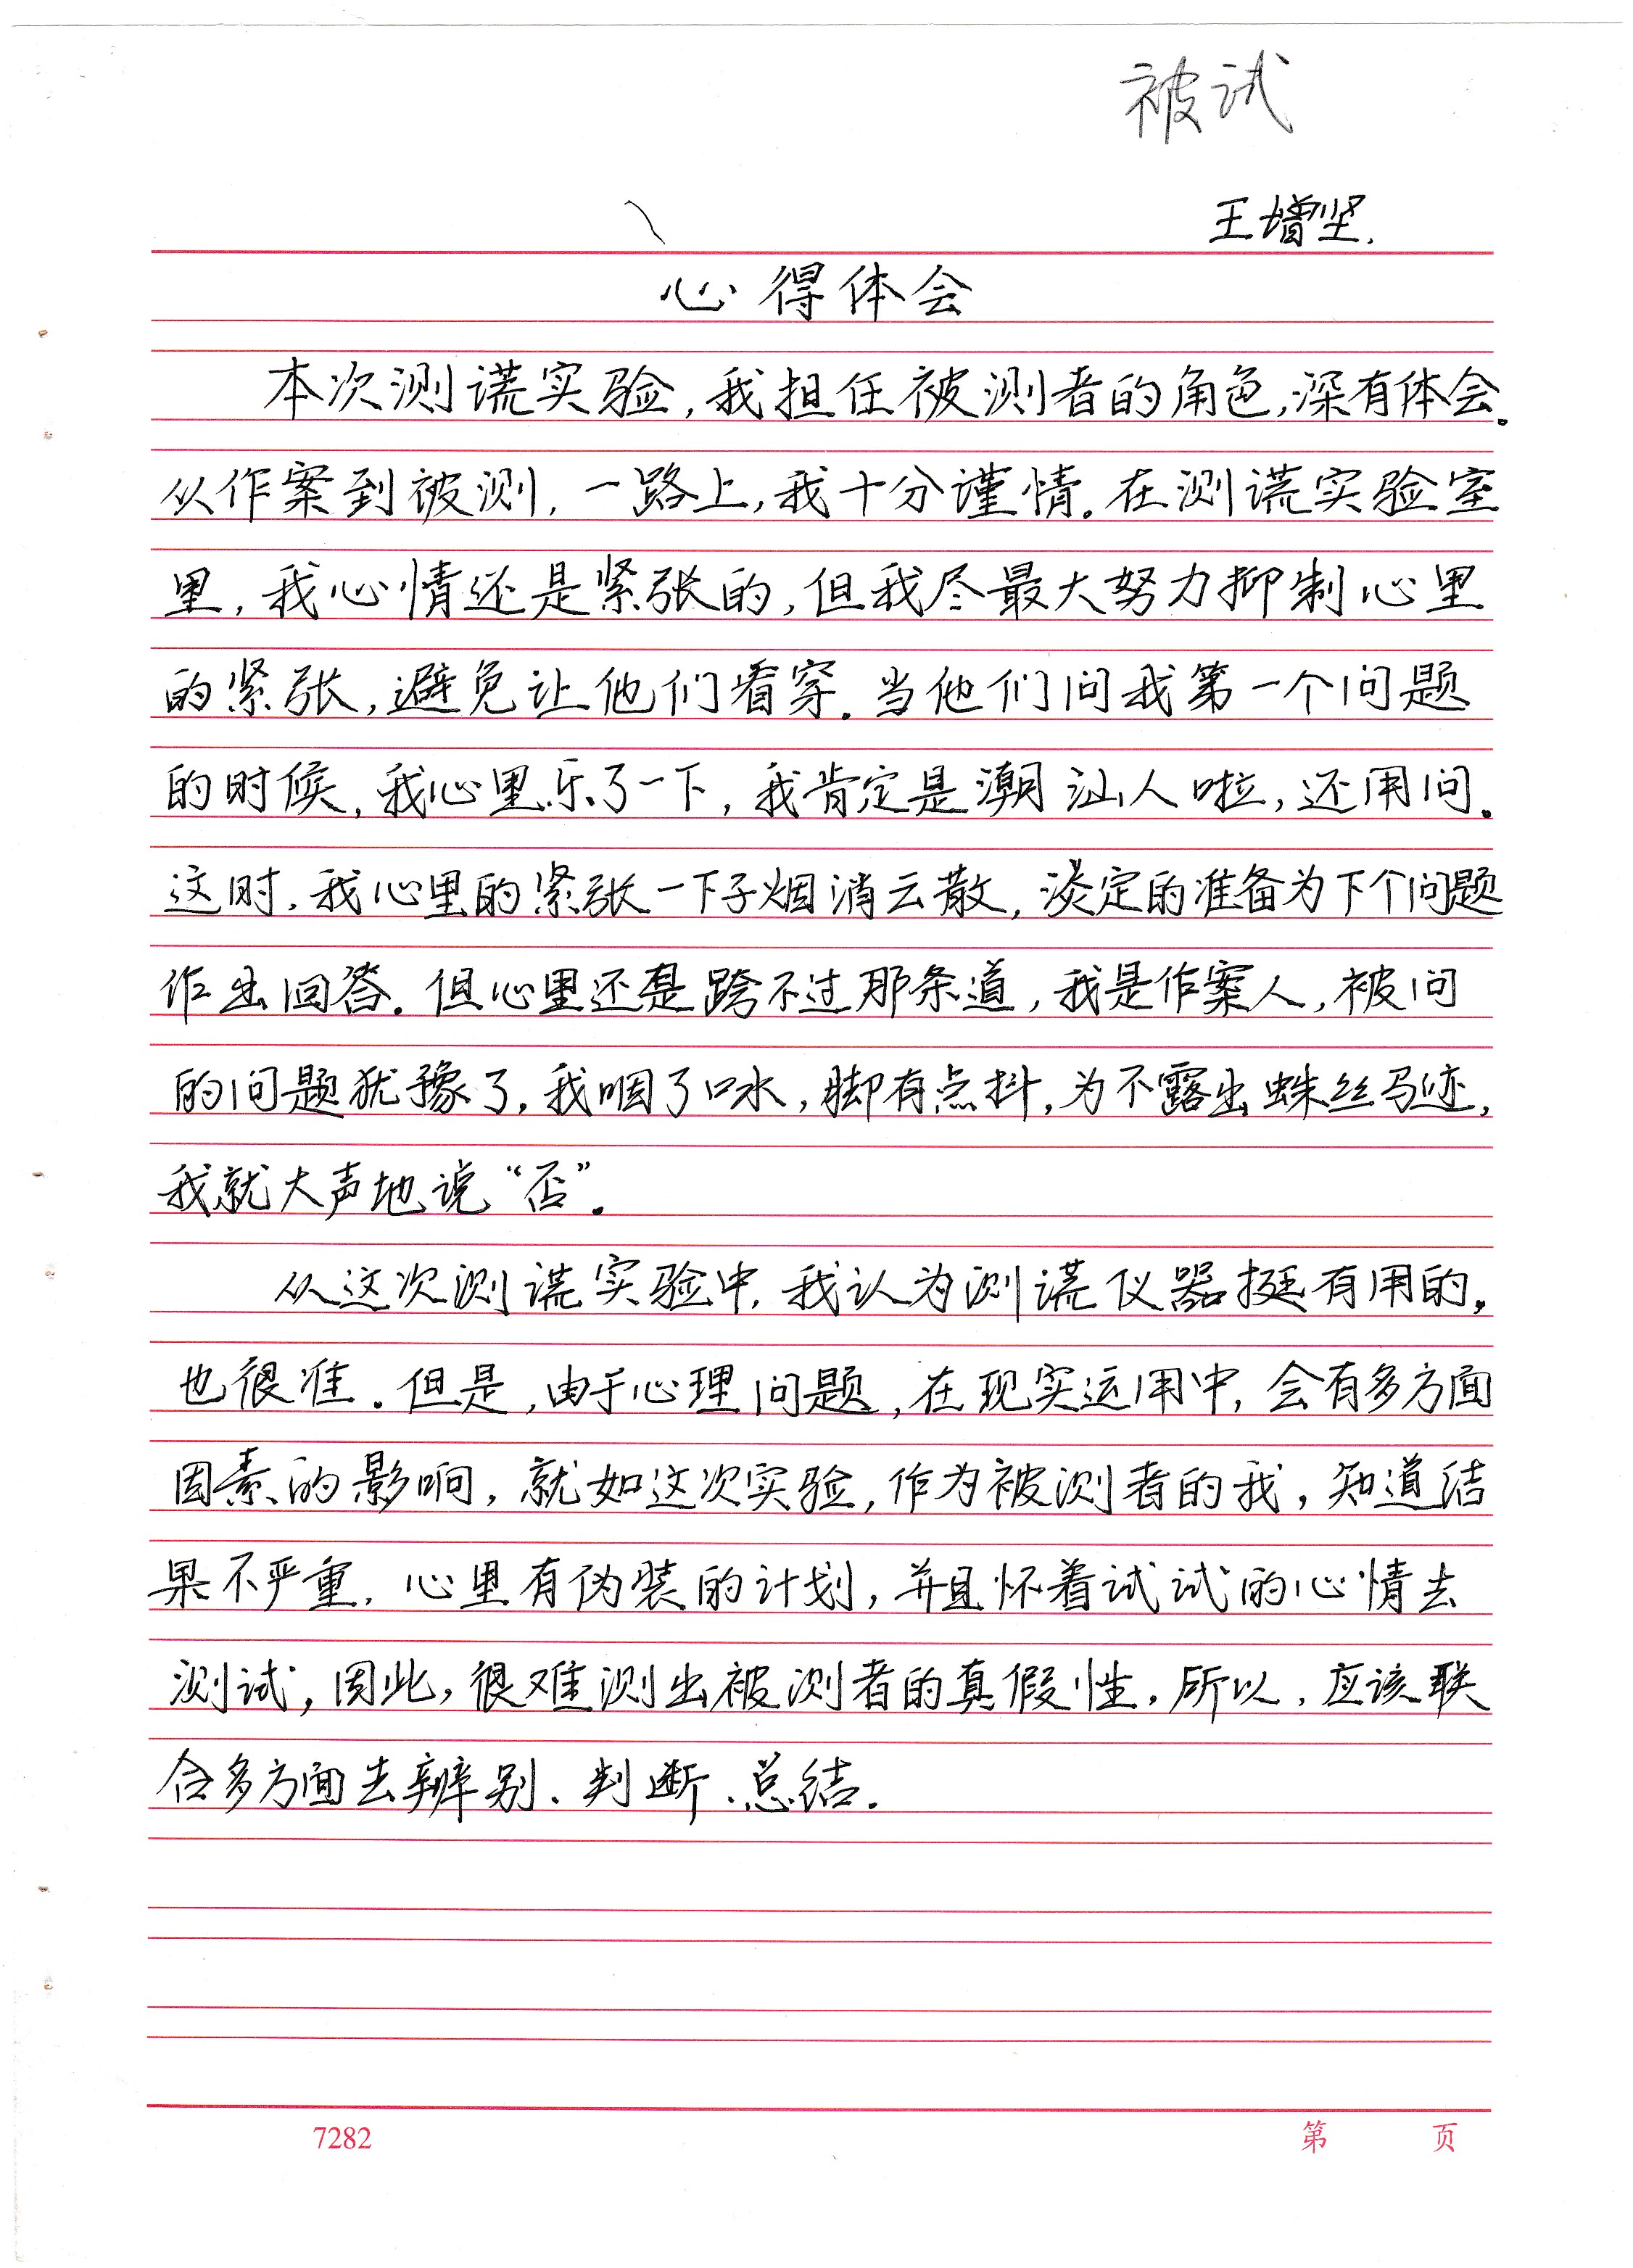 被试
王增坚.
心得体会
本次测谎实验,我担任被测者的角色,深有体会。
从作案到被测,一路上,我十分谨情。在测谎实验室
里,我心情还是紧张的,但我尽最大努力抑制心里
的紧张,避免让他们看穿。当他们问我第一个问题
的时候,我心里乐了一下,我肯定是潮汕人啦,还用问。
这时,我心里的紧张一下子烟消云散,淡定的准备为下个问题
作出回答。但心里还是跨不过那条道,我是作案人,被问
的问题犹豫了,我咽了口水,脚有点抖,为不露出蛛丝马迹,
我就大声地说“否”。
从这次测谎实验中,我认为测谎仪器挺有用的,
也很准。但是,由于心理问题,在现实运用中,会有多方面
因素的影响,就如这次实验,作为被测者的我,知道结
果不严重,心里有伪装的计划,并且怀着试试的心情去
测试,因此,很难测出被测者的真假性,所以,应该联
合多方面去辨别、判断、总结.
7282 第 页